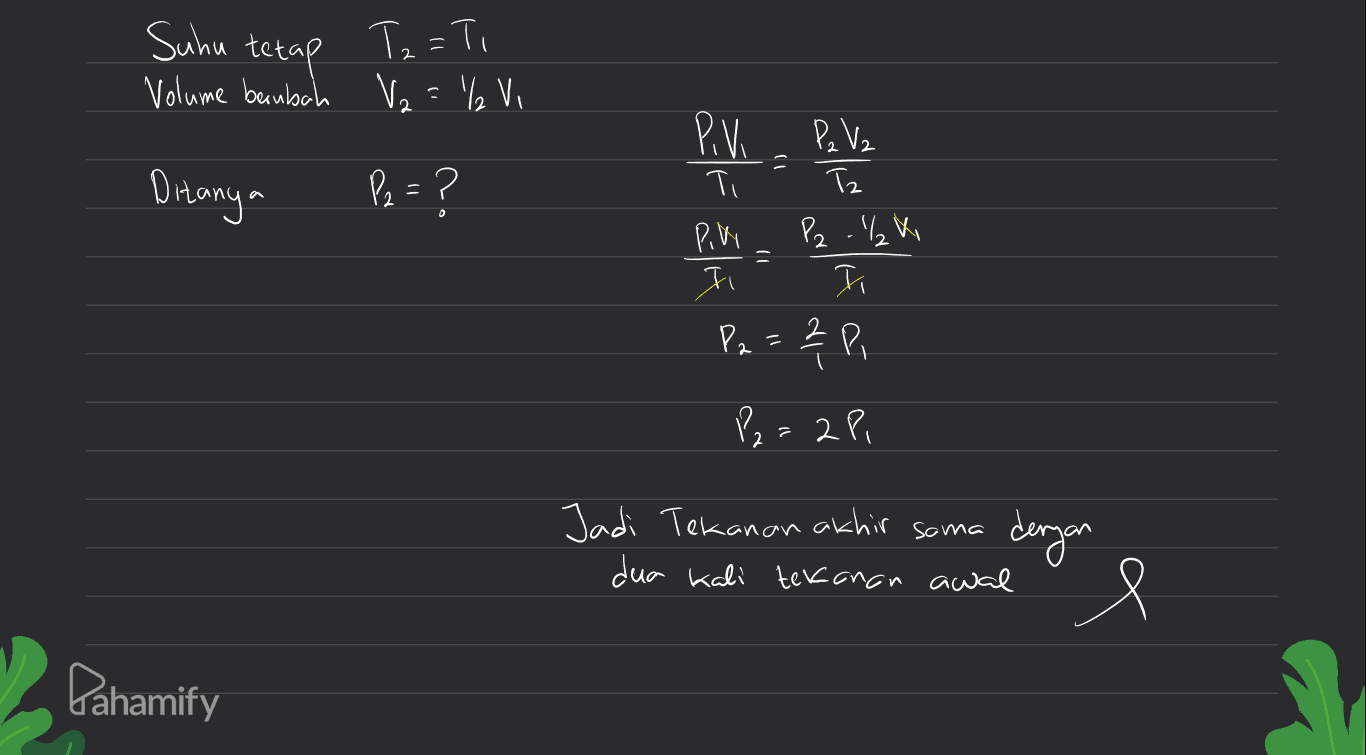 Suhu tetap T₂ = T₁
Volume berubah V₂ = ½ V₁
Ditanya P₂ = ?
P₁V₁/T₁ = P₂V₂/T₂
P₁V₁/T₁ = P₂ . ½ V₁/T₁
P₂ = 2/1 P₁
P₂ = 2 P₁
Jadi Tekanan akhir sama dengan
dua kali tekanan awal
Pahamify